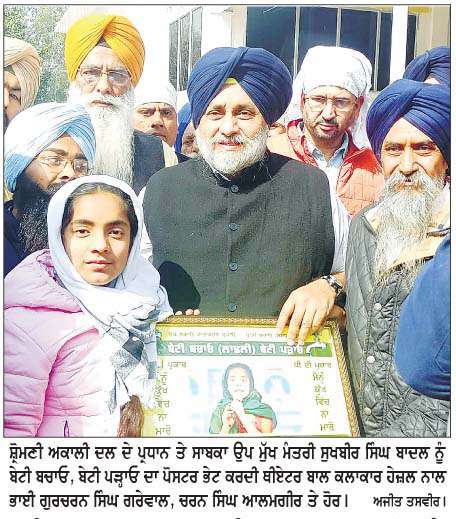 ਬੇਟੀ ਬਚਾਓ (ਨਾਡਲੀ) ਬੇਟੀ ਪੜਾਓ
ਧੀ ਦੀ ਪੁਕਾਰ
ਪੁਕਾਰ
ਮੈਨੂੰ
ਕੁੱਖ
ਵਿਚ
ਨਾ
ਮਾਰੋ
ਮੈਨੂੰ
ਕੁੱਖ
ਵਿਚ
ਨਾ
ਮਾਰੋ
ਸ਼੍ਰੋਮਣੀ ਅਕਾਲੀ ਦਲ ਦੇ ਪ੍ਰਧਾਨ ਤੇ ਸਾਬਕਾ ਉਪ ਮੁੱਖ ਮੰਤਰੀ ਸੁਖਬੀਰ ਸਿੰਘ ਬਾਦਲ ਨੂੰ
ਬੇਟੀ ਬਚਾਓ, ਬੇਟੀ ਪੜ੍ਹਾਓ ਦਾ ਪੋਸਟਰ ਭੇਟ ਕਰਦੀ ਥੀਏਟਰ ਬਾਲ ਕਲਾਕਾਰ ਹੇਜ਼ਲ ਨਾਲ
ਭਾਈ ਗੁਰਚਰਨ ਸਿੰਘ ਗਰੇਵਾਲ, ਚਰਨ ਸਿੰਘ ਆਲਮਗੀਰ ਤੇ ਹੋਰ। ਅਜੀਤ ਤਸਵੀਰ।